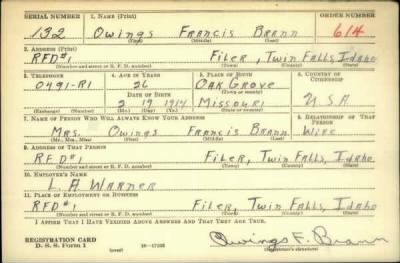 SERIAL NUMBER 1. NAME (Print) ORDER NUMBER
132 Owings Francis Brann 614
(First) (Middle) (Last)
2. ADDRESS (Print)
RFD#1 Filer, Twin Falls, Idaho
(Number and street or R. F. D. number) (Town) (County) (State)
3. TELEPHONE 4. AGE IN YEARS 5. PLACE OF BIRTH 6. COUNTRY OF CITIZENSHIP
0491-R1 26 Oak Grove
DATE OF BIRTH (Town or county)
2 19 1914 Missouri U S A
(Exchange) (Number) (Mo.) (Day) (Yr.) (State or country)
7. NAME OF PERSON WHO WILL ALWAYS KNOW YOUR ADDRESS 8. RELATIONSHIP OF THAT PERSON
Mrs. Owings Francis Brann Wife
(Mr., Mrs., Miss) (First) (Middle) (Last)
9. ADDRESS OF THAT PERSON
RFD#1 Filer, Twin Falls, Idaho
(Number and street or R. F. D. number) (Town) (County) (State)
10. EMPLOYER'S NAME
L. A. Warner
11. PLACE OF EMPLOYMENT OR BUSINESS
RFD#1 Filer, Twin Falls, Idaho
(Number and street or R. F. D. number) (Town) (County) (State)
I AFFIRM THAT I HAVE VERIFIED ABOVE ANSWERS AND THAT THEY ARE TRUE.
REGISTRATION CARD
D. S. S. Form 1 (over) 16—17105 Owings F. Brann
(Registrant's signature)